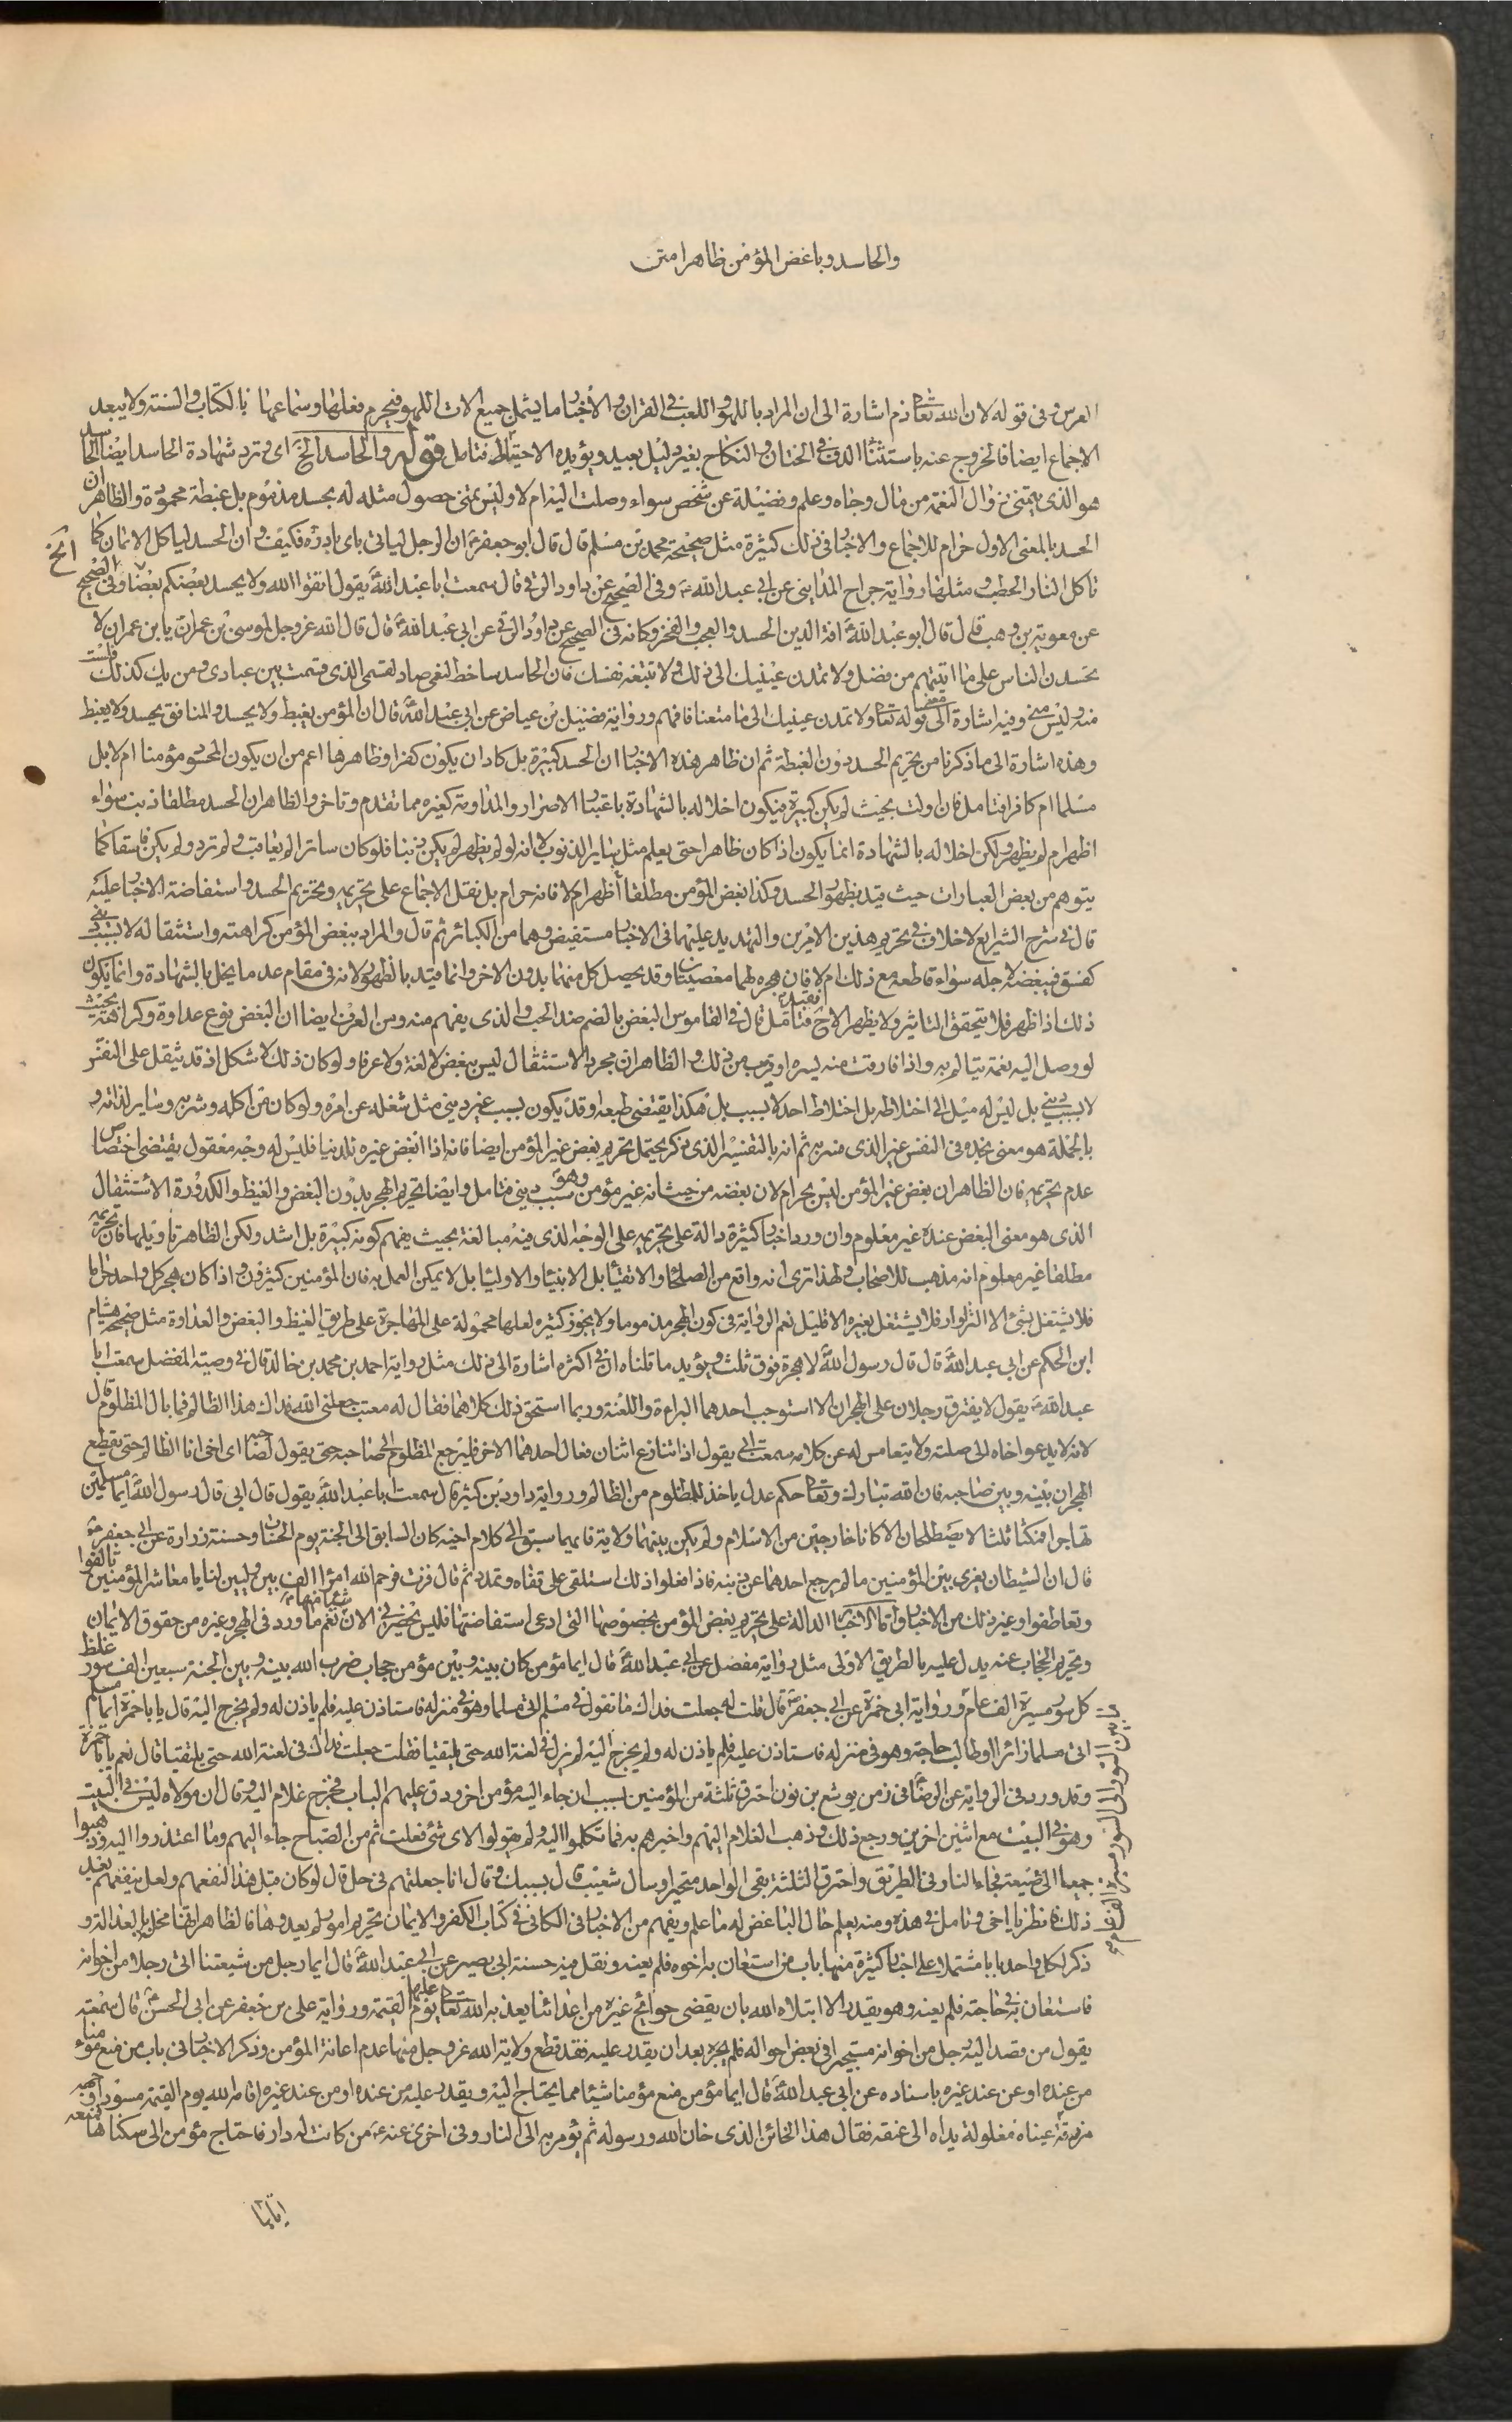 والحاسد و باغض المؤمن ظاهرا متن
العرس و فى قوله لان الله تعالى ذم اشارة الى ان المراد باللهو و اللعب فى القران و الأخبار ما يشمل جميع الات اللهو فيحرم فعلها و سماعها بالكتاب و السنة و لا يبعد
الاجماع ايضا فالخروج عنه باستثناء الدف فى الختان و النكاح بغير دليل بعيد و يؤيده الاحتياط فتامل قوله و الحاسد الخ اى و ترد شهادة الحاسد ايضا الحاسد
هو الذى يتمنى زوال النعمة من مال و جاه و علم و فضيلة عن شخص سواء وصلت اليه ام لا و ليس تمنى حصول مثله له بحسد مذموم بل غبطة محمودة و الظاهر ان
الحسد بالمعنى الاول حرام للاجماع و الاخبار فى ذلك كثيرة مثل صحيحة محمد بن مسلم قال قال ابو جعفر ع ان الرجل لياتى باى بادرة فيكفر و ان الحسد لياكل الايمان كما
تاكل النار الحطب و مثلها رواية جراح المداينى عن ابى عبد الله ع و فى الصحيح عن داود الرقى قال سمعت ابا عبد الله ع يقول اتقوا الله و لا يحسد بعضكم بعضا و فى الصحيح الخ
عن معوية بن وهب قال قال ابو عبد الله ع افة الدين الحسد و العجب و الفخر و كانه فى الصحيح عن داود الرقى عن ابى عبد الله ع قال قال الله عز و جل لموسى بن عمران يا بن عمران لا
تحسدن الناس على ما اتيتهم من فضلى و لا تمدن عينيك الى ذلك و لا تتبعه نفسك فان الحاسد ساخط لنعمى صاد لقسمى الذى قسمت بين عبادى و من يك كذلك فلست
منه و ليس منى و فيه اشارة الى قوله تعالى و لا تمدن عينيك الى ما متعنا فافهم و رواية فضيل بن عياض عن ابى عبد الله ع قال ان المؤمن يغبط و لا يحسد و المنافق يحسد و لا يغبط
و هذه اشارة الى ما ذكرنا من تحريم الحسد دون الغبطة ثم ان ظاهر هذه الاخبار ان الحسد كبيرة بل كاد ان يكون كفرا و ظاهرها اعم من ان يكون المحسود مؤمنا ام لا بل
مسلما ام كافرا فتامل فان اولت بحيث لم يكن كبيرة فيكون اخلاله بالشهادة باعتبار الاصرار و المداومة كغيره مما تقدم و تاخر و الظاهر ان الحسد مطلقا ذنب سواء
اظهر ام لم يظهر و لكن اخلاله بالشهادة انما يكون اذا كان ظاهرا حتى يعلم مثل ساير الذنوب لا انه لو لم يظهر لم يكن ذنبا فلو كان ساترا لم يعاقب و لم ترد و لم يكن فاسقا كما
يتوهم من بعض العبارات حيث قيد بظهور الحسد و كذا بغض المؤمن مطلقا أظهر ام لا فانه حرام بل نقل الاجماع على تحريمه و تحريم الحسد و استفاضة الاخبار عليه
قال فى شرح الشرايع لا خلاف فى تحريم هذين الامرين و التهديد عليهما فى الاخبار مستفيض و هما من الكبائر ثم قال و المراد ببغض المؤمن كراهته و استثقاله لا بسبب دينى
كفسق فيبغضه لاجله سواء قاطعه مع ذلك ام لا فان هجره لهما معصيتان و قد يحصل كل منهما بدون الاخر و انما قيد بالظهور لانه فى مقام عد ما يخل بالشهادة و انما يكون
ذلك اذا ظهر فلا يتحقق التاثير و لا يظهر الا ح فتامل قال فى القاموس البغض بالضم ضد الحب و الذى يفهم منه و من العرف ايضا ان البغض نوع عداوة و كراهة بحيث
لو وصل اليه نعمة يتالم به و اذا فارقت منه يسره او قريب من ذلك و الظاهر ان مجرد الاستثقال ليس ببغض لا لغة و لا عرفا و لو كان ذلك لاشكل اذ قد يثقل على النفس
لا بسبب دينى بل ليس له ميل الى اختلاطه بل اختلاط احد لا بسبب بل هكذا يقتضى طبعه و قد يكون بسبب غير دينى مثل شغله عن امره و لو كان من اكله و شربه و ساير لذاته و
بالجملة هو معنى نجده فى النفس غير الذى فسر به ثم انه بالتفسير الذى ذكر يحتمل تحريم بغض غير المؤمن ايضا فانه اذا ابغض غيره للدنيا فليس له وجه معقول يقتضى اختصاص
عدم تحريمه فان الظاهر ان بغض غير المؤمن ليس بحرام لان بغضه من حيث انه غير مؤمن و هو سبب دينى فتامل و ايضا تحريم الهجر بدون البغض و الغيظ و الكدورة الاستثقال
الذى هو معنى البغض عنده غير معلوم و ان ورد اخبار كثيرة دالة على تحريمه على الوجه الذى فيه مبالغة بحيث يفهم كونه كبيرة بل اشد و لكن الظاهر تاويلها فان تحريمه
مطلقا غير معلوم انه مذهب للاصحاب و لهذا ترى انه واقع من الصلحاء و الاتقياء بل الانبياء و الاوليا بل لا يمكن العمل به فان المؤمنين كثيرون و اذا كان هجر كل واحد حراما
فلا يشتغل بشئ الا التزاور فلا يشتغل بغيره الا قليل نعم الرواية فى كون الهجر مذموما و لا يجوز كثيره لعلها محمولة على المهاجرة على طريق الغيظ و البغض و العداوة مثل صحيحة هشام
ابن الحكم عن ابى عبد الله ع قال قال رسول الله ص لا هجرة فوق ثلث و يؤيد ما قلناه ان فى اكثره اشارة الى ذلك مثل رواية احمد بن محمد بن خالد قال فى وصية المفضل سمعت ابا
عبد الله ع يقول لا يفترق رجلان على الهجران الا استوجب احدهما البراءة و اللعنة و ربما استحق ذلك كلاهما فقال له معتب جعلنى الله فداك هذا الظالم فما بال المظلوم قال
لانه لا يدعو اخاه الى صلته و لا يتعامس له عن كلامه سمعت ابى يقول اذا تنازع اثنان فعال احدهما الاخر فليرجع المظلوم الى صاحبه حتى يقول لصاحبه اى اخى انا الظالم حتى يقطع
الهجران بينه و بين صاحبه فان الله تبارك و تعالى حكم عدل ياخذ للمظلوم من الظالم و رواية داود بن كثير قال سمعت ابا عبد الله ع يقول قال ابى قال رسول الله ص ايما مسلمين
تهاجرا فمكثا ثلثا لا يصطلحان الا كانا خارجين من الاسلام و لم يكن بينهما ولاية فايهما سبق الى كلام اخيه كان السابق الى الجنة يوم الحساب و حسنة زرارة عن ابى جعفر ع
قال ان الشيطان يغرى بين المؤمنين ما لم يرجع احدهما عن دينه فاذا فعلوا ذلك استلقى على قفاه و تمدد ثم قال فزت فرحم الله امرؤا الف بين وليين لنا يا معاشر المؤمنين تالفوا
و تعاطفوا و غير ذلك من الاخبار و اما الاخبار الدالة على تحريم بغض المؤمن بخصوصها التى ادعى استفاضتها فليس يحضرنى الان شئ منها نعم ما ورد فى الهجر و غيره من حقوق الايمان
و تحريم الحجاب عنه يدل عليه بالطريق الاولى مثل رواية مفضل عن ابى عبد الله ع قال ايما مؤمن كان بينه و بين مؤمن حجاب ضرب الله بينه و بين الجنة سبعين الف سور غلظ
كل سور مسيرة الف عام و رواية ابى حمزة عن ابى جعفر ع قال قلت له جعلت فداك ما تقول فى مسلم اتى مسلما و هو فى منزله فاستاذن عليه فلم ياذن له و لم يخرج اليه قال يا با حمزة ايما مسلم
اتى مسلما زائرا او طالب حاجة و هو فى منزله فاستاذن عليه فلم ياذن له و لم يخرج اليه لم يزل فى لعنة الله حتى يلتقيا فقلت جعلت فداك فى لعنة الله حتى يلتقيا قال نعم يا با حمزة
و قد ورد فى الرواية عن الرضا ع فى زمن يوشع بن نون احترق ثلثة من المؤمنين بسبب ان جاء اليه مؤمن اخر و دق عليهم الباب فخرج غلام اليه و قال ان مولاه ليس فى البيت
و هو فى البيت مع اثنين اخرين و رجع ذلك و ذهب الغلام اليهم و اخبرهم به فما تكلموا اليه و لم يقولوا لاى شئ فعلت ثم من الصباح جاء اليهم و ما اعتذروا اليه و ذهبوا
جميعا الى ضيعة فجاء النار فى الطريق و احترق الثلثة بقى الواحد متحيرا و سال شعيب قال بسببك و قال انا جعلتهم فى حل قال لو كان قبل هذا لنفعهم و لعل ينفعهم بعد
ذلك فانظر يا اخى و تامل فى هذه و منه يعلم حال الباغض له ما علم و يفهم من الاخبار فى الكافى فى كتاب الكفر و الايمان تحريم امور لم يعدوها فالظاهر انها مخل بالعدالة و
ذكر لكل واحد بابا مشتملا على اخبار كثيرة منها باب من استعان به اخوه فلم يعنه و نقل فيه حسنة ابى بصير عن ابى عبد الله ع قال ايما رجل من شيعتنا اتى رجلا من اخوانه
فاستعان به فى حاجته فلم يعنه و هو يقدر الا ابتلاه الله بان يقضى حوائج غيره من اعدائنا يعذبه الله تعالى عليها يوم القيمة و رواية على بن جعفر عن ابى الحسن ع قال سمعته
يقول من قصد اليه رجل من اخوانه مستجيرا فى بعض احواله فلم يجره بعد ان يقدر عليه فقد قطع ولاية الله عز و جل منها عدم اعانة المؤمن و ذكر الاخبار فى باب من منع مؤمنا
من عنده او عن عند غيره باسناده عن ابى عبد الله ع قال ايما مؤمن منع مؤمنا شيئا مما يحتاج اليه و يقدر عليه من عنده او من عند غيره اقامه الله يوم القيمة مسودا وجهه
مزرقة عيناه مغلولة يداه الى عنقه فقال هذا الخائن الذى خان الله و رسوله ثم يؤمر به الى النار و فى اخرى عنه ع من كانت له دار فاحتاج مؤمن الى سكناها فمنعه
اياها